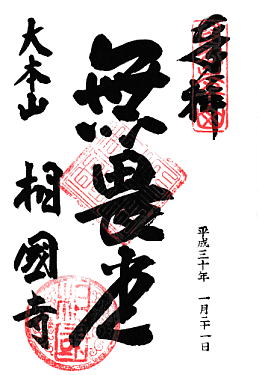 奉拝
平成三十年 一月二十一日
無畏堂
大本山 相國寺